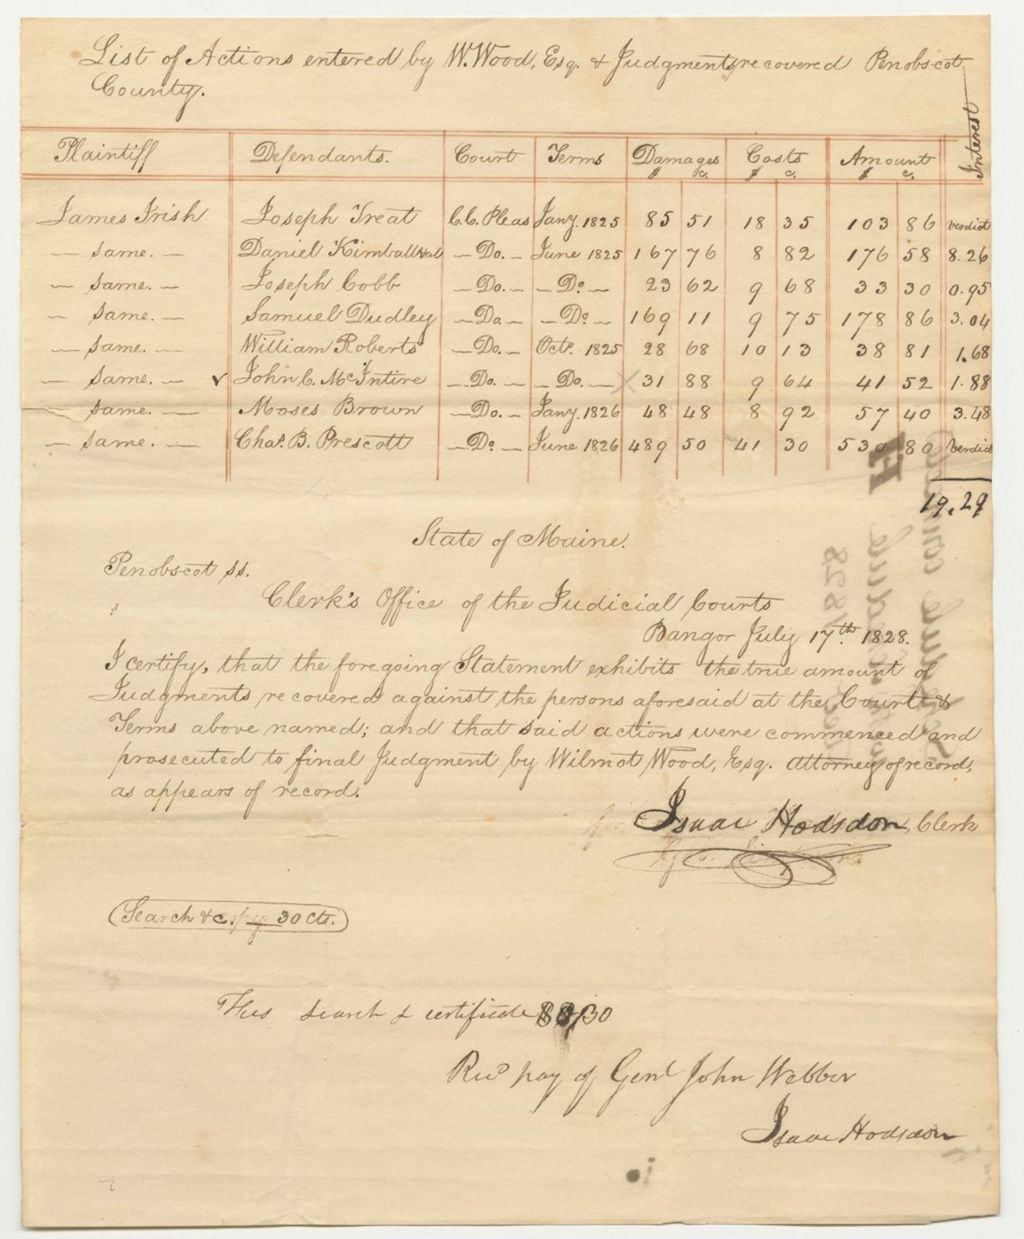 List of Actions entered by W. Wood, Esq. & Judgments recovered Penobscot
County.
Plaintiff Defendants. Court Terms Damages Costs Amount Interest
$ c. $ c. $ c.
James Irish Joseph Treat C.C. Pleas Jany. 1825 85 51 18 35 103 86 verdict
— same. — Daniel Kimball & al — Do. — June 1825 167 76 8 82 176 58 8.26
— same. — Joseph Cobb — Do. — — Do — 23 62 9 68 33 30 0.95
— same. — Samuel Dudley — Do — — Do — 169 11 9 75 178 86 3.04
— same. — William Roberts — Do. — Octr. 1825 28 68 10 13 38 81 1.68
— same. — ✓ John C. McIntire — Do. — — Do. — X 31 88 9 64 41 52 1.88
— same. — Moses Brown — Do. — Jany. 1826 48 48 8 92 57 40 3.48
— same. — Chas. B. Prescott — Do — June 1826 489 50 41 30 530 80 Verdict
19.29
State of Maine.
Penobscot ss.
Clerk's Office of the Judicial Courts
Bangor July 17th. 1828.
I certify, that the foregoing Statement exhibits the true amount of
Judgments recovered against the persons aforesaid at the Court &
Terms above named; and that said actions were commenced and
prosecuted to final Judgment by Wilmot Wood, Esq. attorney of record,
as appears of record.
Isaac Hodsdon, Clerk
Search & c. — 30 cts.
This search & certificate 30
Recd pay of Genl John Webber
Isaac Hodsdon